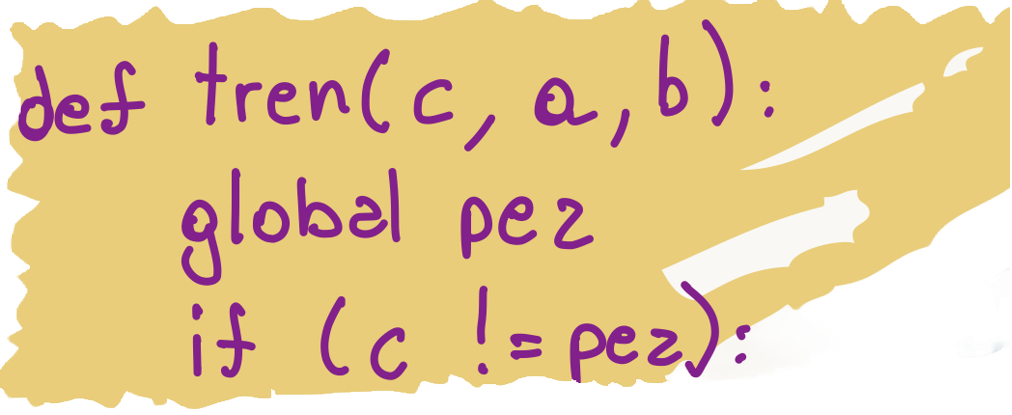 def tren(c, a, b):
global pez
if (c != pez):